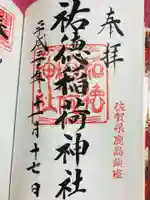 奉拝
佐賀県鹿島鎮座
祐徳稲荷神社
平成 年 月十七日